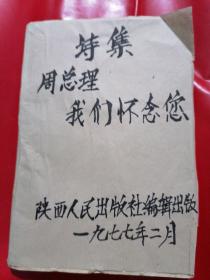 诗集
周总理
我们怀念您
陕西人民出版社编辑出版
一九七七年二月